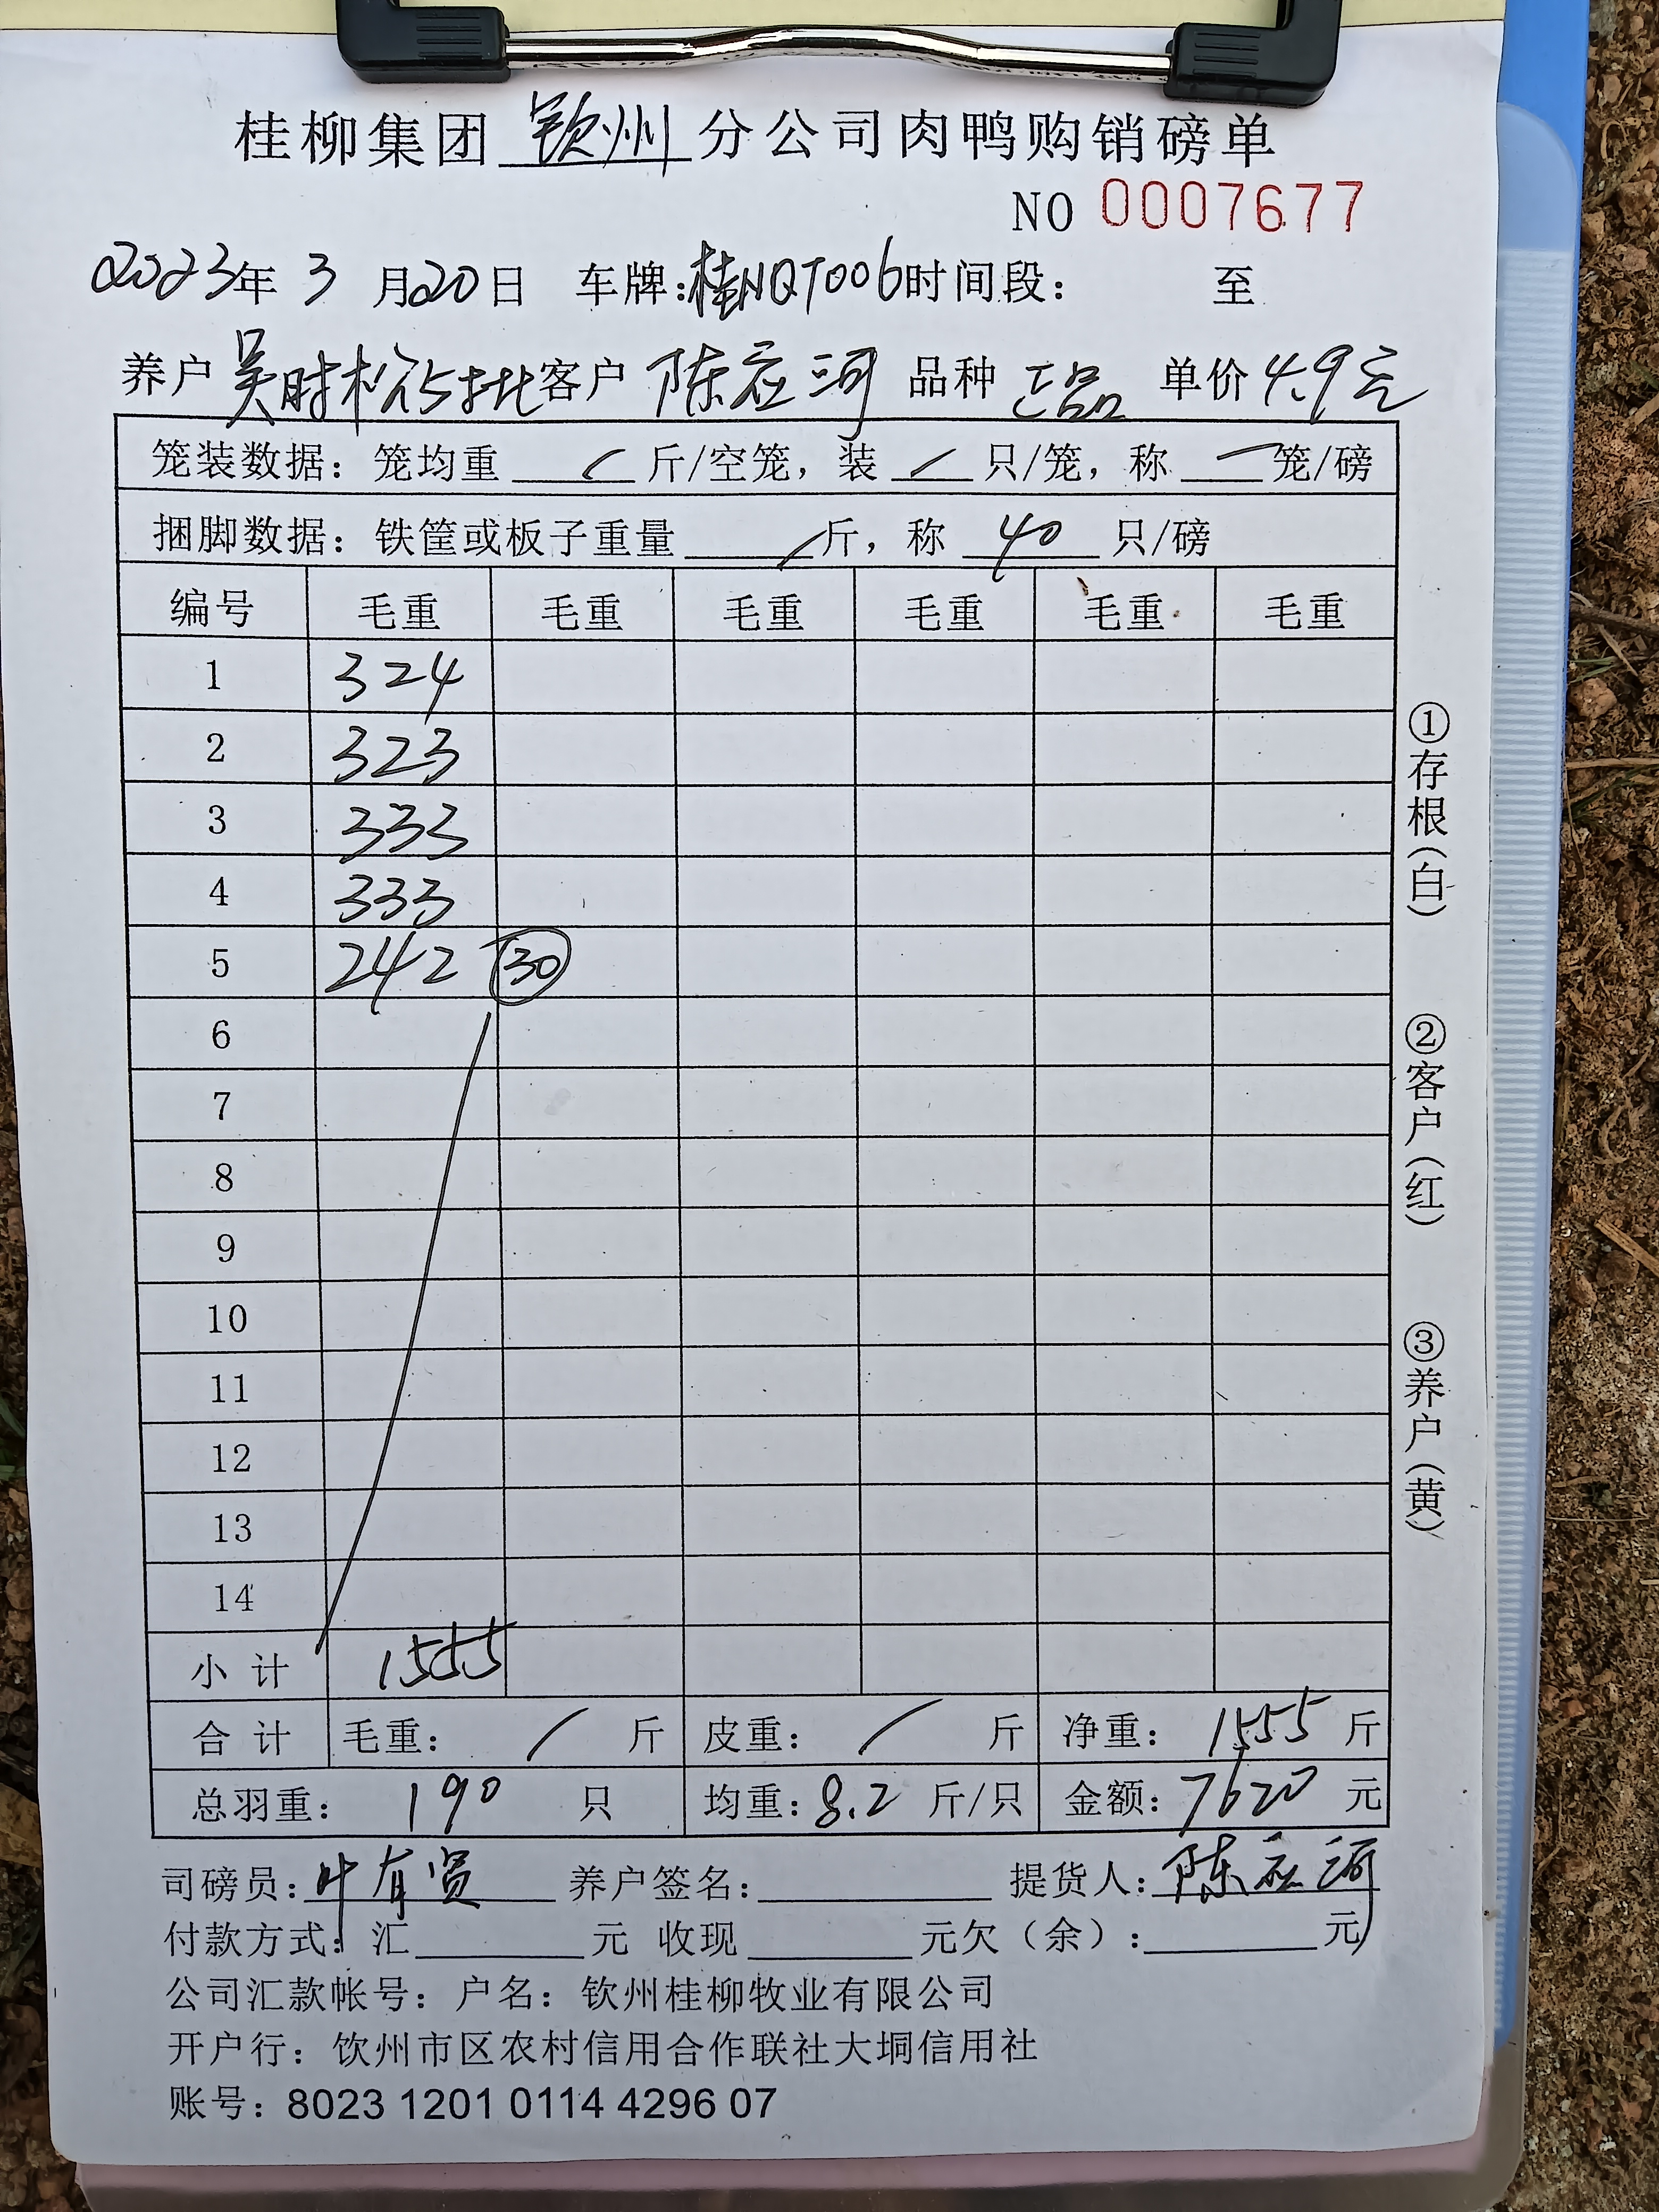 桂柳集团 钦州 分公司肉鸭购销磅单
NO 0007677
2023年 3 月20日 车牌:桂NQT006时间段: 至
养户 吴时松65批客户 陈应河 品种 正品 单价4.9元
笼装数据: 笼均重 / 斤/空笼, 装 / 只/笼, 称 一 笼/磅
捆脚数据: 铁筐或板子重量 / 斤, 称 40 只/磅
编号 毛重 毛重 毛重 毛重 毛重 毛重
1 324
2 323
3 333
4 333
5 242 30
6
7
8
9
10
11
12
13
14
小计 1555
合计 毛重: / 斤 皮重: / 斤 净重: 1555 斤
总羽重: 190 只 均重: 8.2 斤/只 金额: 7620 元
司磅员: 叶有贤 养户签名: 提货人: 陈应河
付款方式: 汇 元 收现 元欠(余): 元
公司汇款帐号: 户名: 钦州桂柳牧业有限公司
开户行: 钦州市区农村信用合作联社大垌信用社
账号: 8023 1201 0114 4296 07
①存根(白)
②客户(红)
③养户(黄)